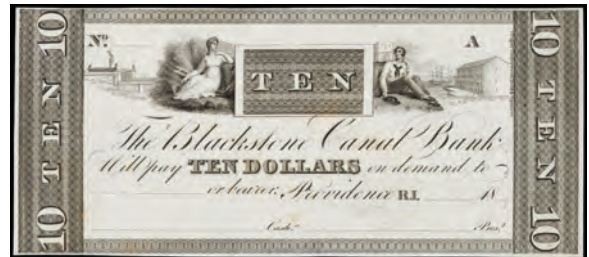 10 TEN 10
Nº
A
TEN
The Blackstone Canal Bank
Will pay TEN DOLLARS on demand to
or bearer. Providence R.I. 18
Cashr.
Prest.
10 TEN 10